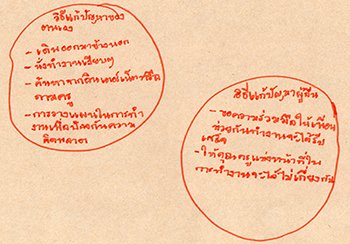 วิธีแก้ปัญหาของ
ตนเอง
- เดินออกมาข้างนอก
- นั่งทำงานเงียบๆ
- ค้นหาจากอินเตอร์เน็ตหรือ
ถามครู
- การวางแผนในการทำ
งานเพื่อป้องกันความ
ผิดพลาด
วิธีแก้ปัญหาผู้อื่น
- ขอความร่วมมือให้เพื่อน
ช่วยกันทำงานจะได้รีบ
เสร็จ
- ให้คุณครูแบ่งหน้าที่ใน
การทำงานจะได้ไม่เกี่ยงกัน